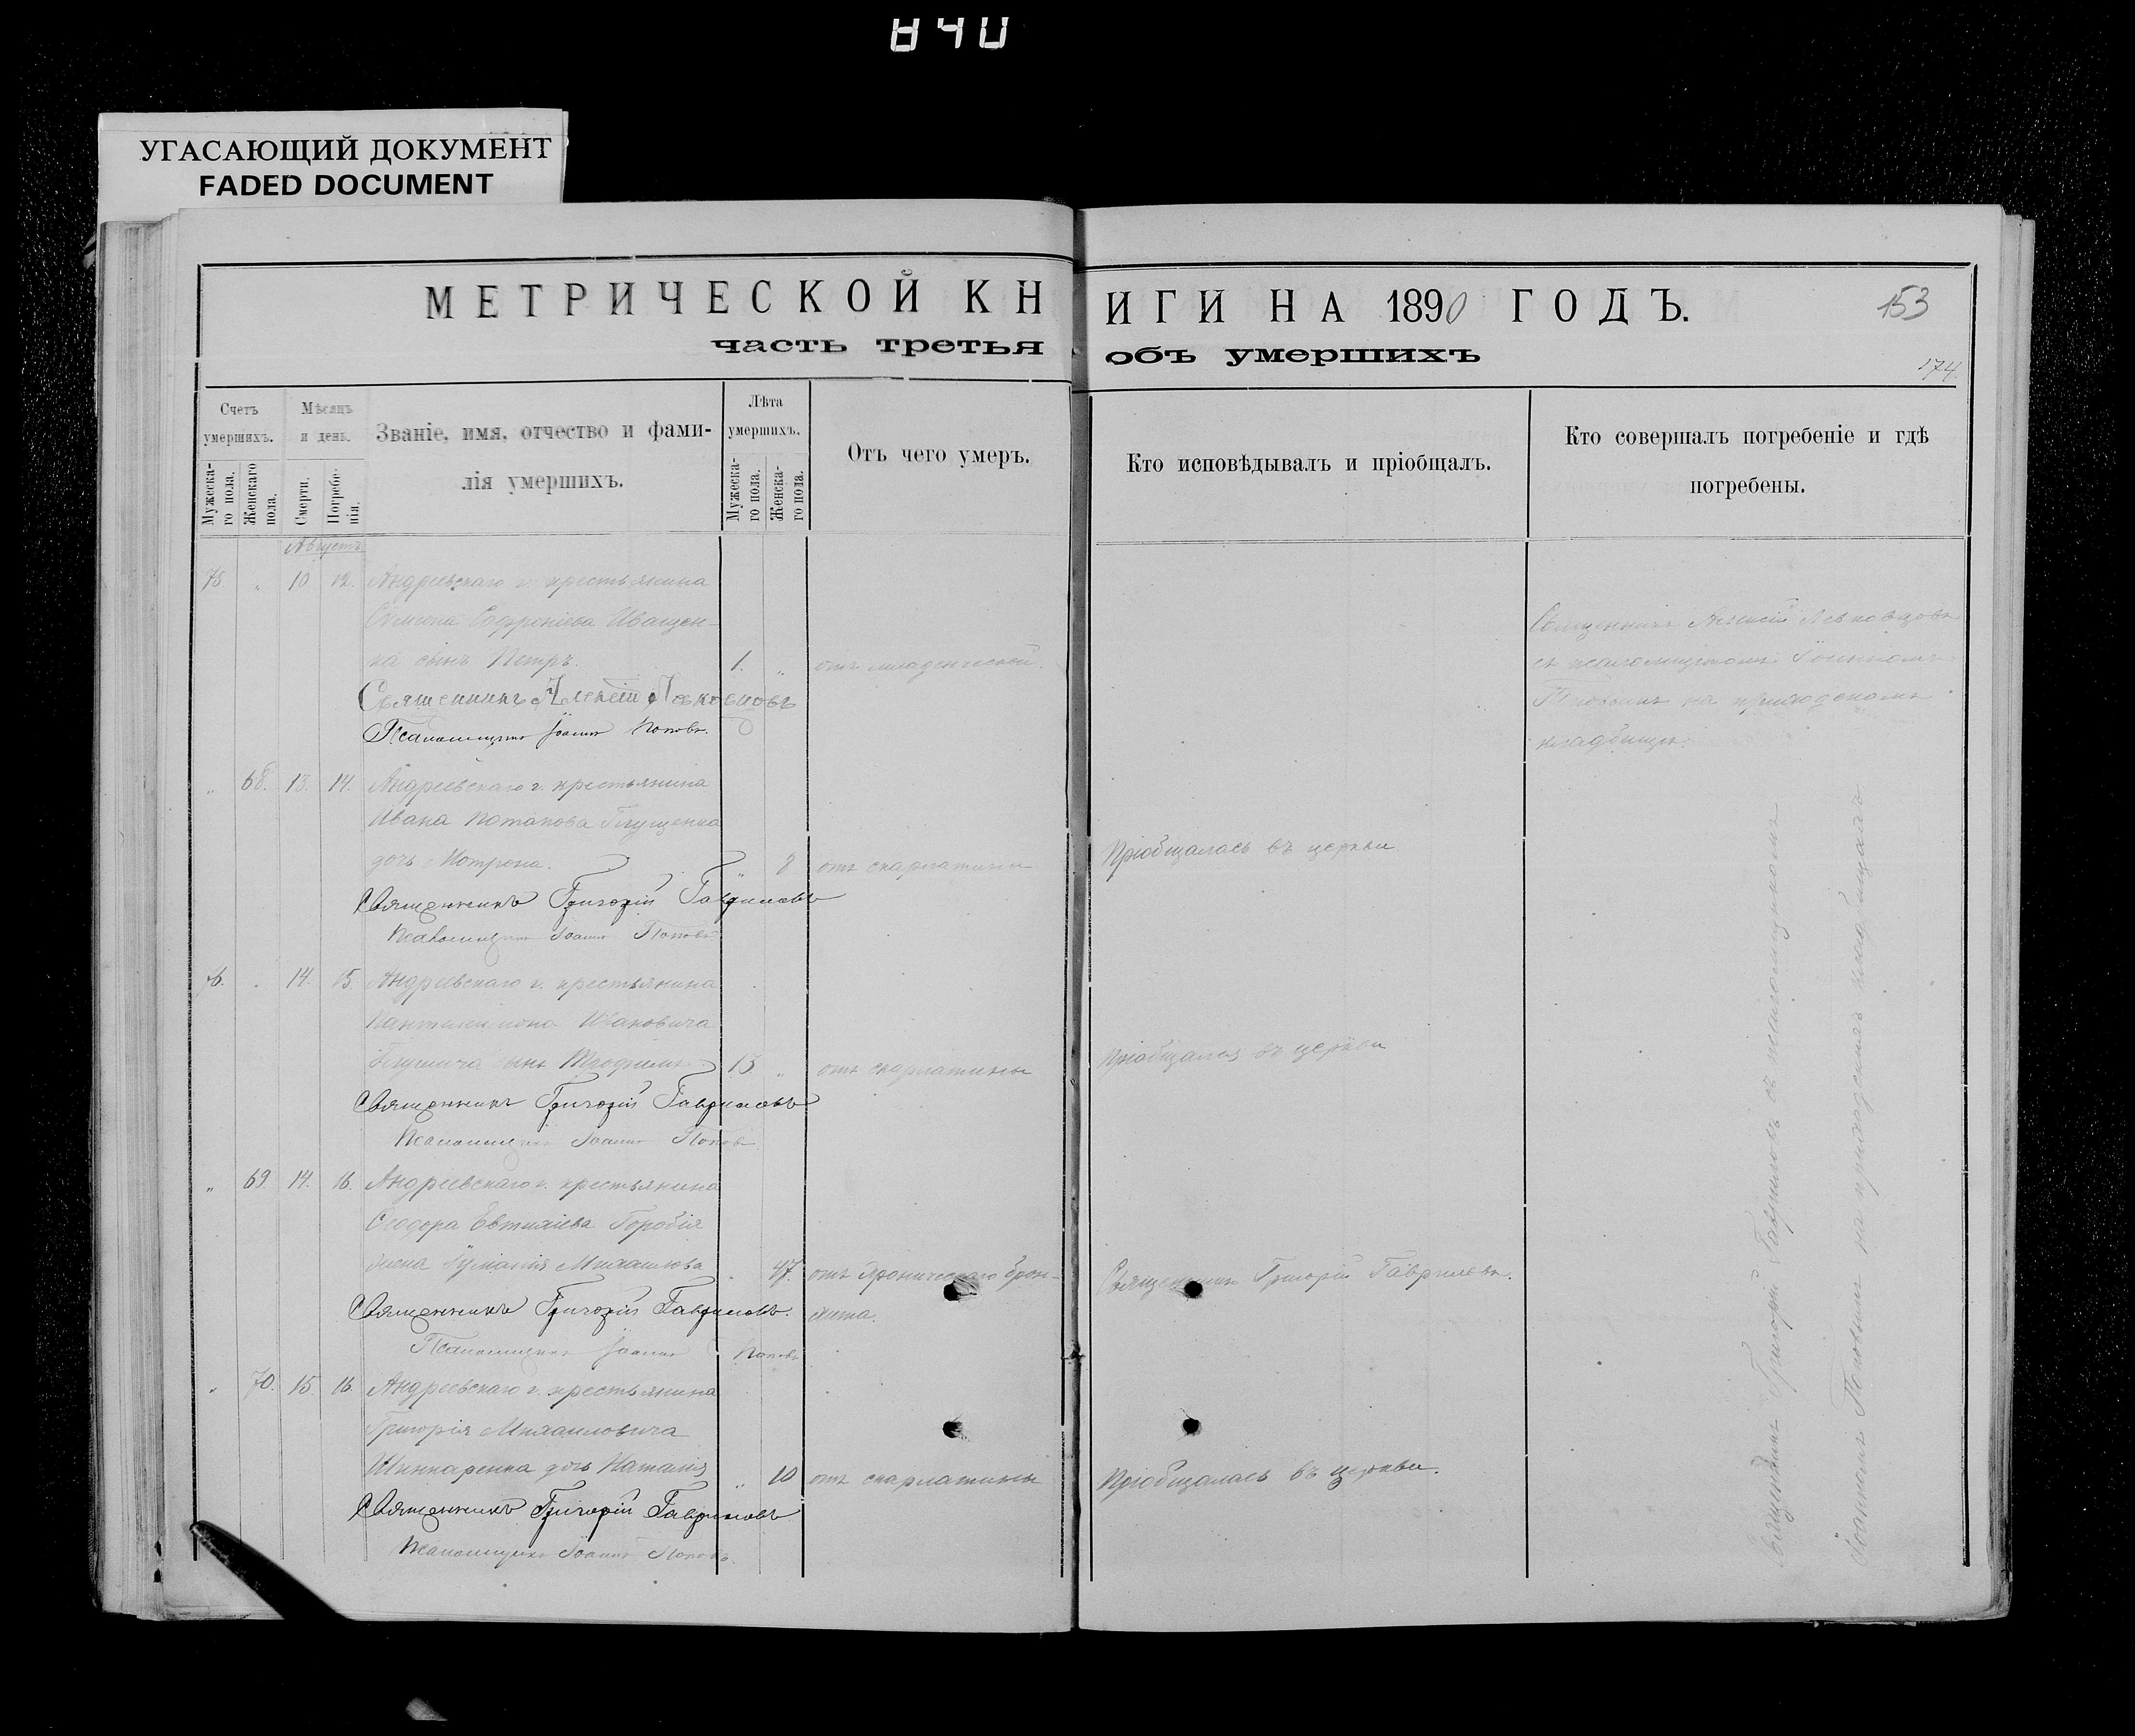 840
УГАСАЮЩИЙ ДОКУМЕНТ
FADED DOCUMENT
МЕТРИЧЕСКОЙ КНИГИ НА 1890 ГОДЪ.
153
часть третья объ умершихъ
174.
Счетъ умершихъ.
Мужеска-го пола.
Женскаго пола.
Мѣсяцъ и день.
Смерти.
Погребе-нія.
Званіе, имя, отчество и фами-
лія умершихъ.
Лѣта умершихъ.
Мужеска-го пола.
Женска-го пола.
Отъ чего умеръ.
Кто исповѣдывалъ и пріобщалъ.
Кто совершалъ погребеніе и гдѣ
погребены.
Августъ
75. " 10 12. Андреевскаго г. крестьянина
Семена Софроніева Иващен-
ка сынъ Петръ. 1. " отъ младенческой.
Священникъ Алексій Левковцовъ
Псаломщикъ Іоаннъ Поповъ.
Священникъ Алексій Левковцовъ
съ псаломщикомъ Іоанномъ
Поповымъ на приходскомъ
кладбищѣ.
" 68. 13. 14. Андреевскаго г. крестьянина
Ивана Потапова
дочь Мотрона. " 8 отъ скарлатины Пріобщалась въ церкви
Священникъ Григорій Гавриловъ
Псаломщикъ Іоаннъ Поповъ
76. " 14. 15. Андреевскаго г. крестьянина
Пантелеимона Ивановича
сынъ 13 " отъ скарлатины Пріобщался въ церкви
Священникъ Григорій Гавриловъ
Псаломщикъ Іоаннъ Поповъ
" 69. 14. 16. Андреевскаго г. крестьянина
Ѳеодора Евтихіева Горобія
жена Михаилова " 47. отъ хроническаго брон-
хита.
Священникъ Григорій Гавриловъ.
Священникъ Григорій Гавриловъ.
Псаломщикъ Іоаннъ Поповъ
" 70. 15. 16. Андреевскаго г. крестьянина
Григорія Михаиловича
Шинкаренка дочь Наталія " 10 отъ скарлатины Пріобщалась въ церкви.
Священникъ Григорій Гавриловъ
Псаломщикъ Іоаннъ Поповъ.
Священникъ Григорій Гавриловъ съ псаломщикомъ
Іоанномъ Поповымъ на приходскомъ кладбищѣ